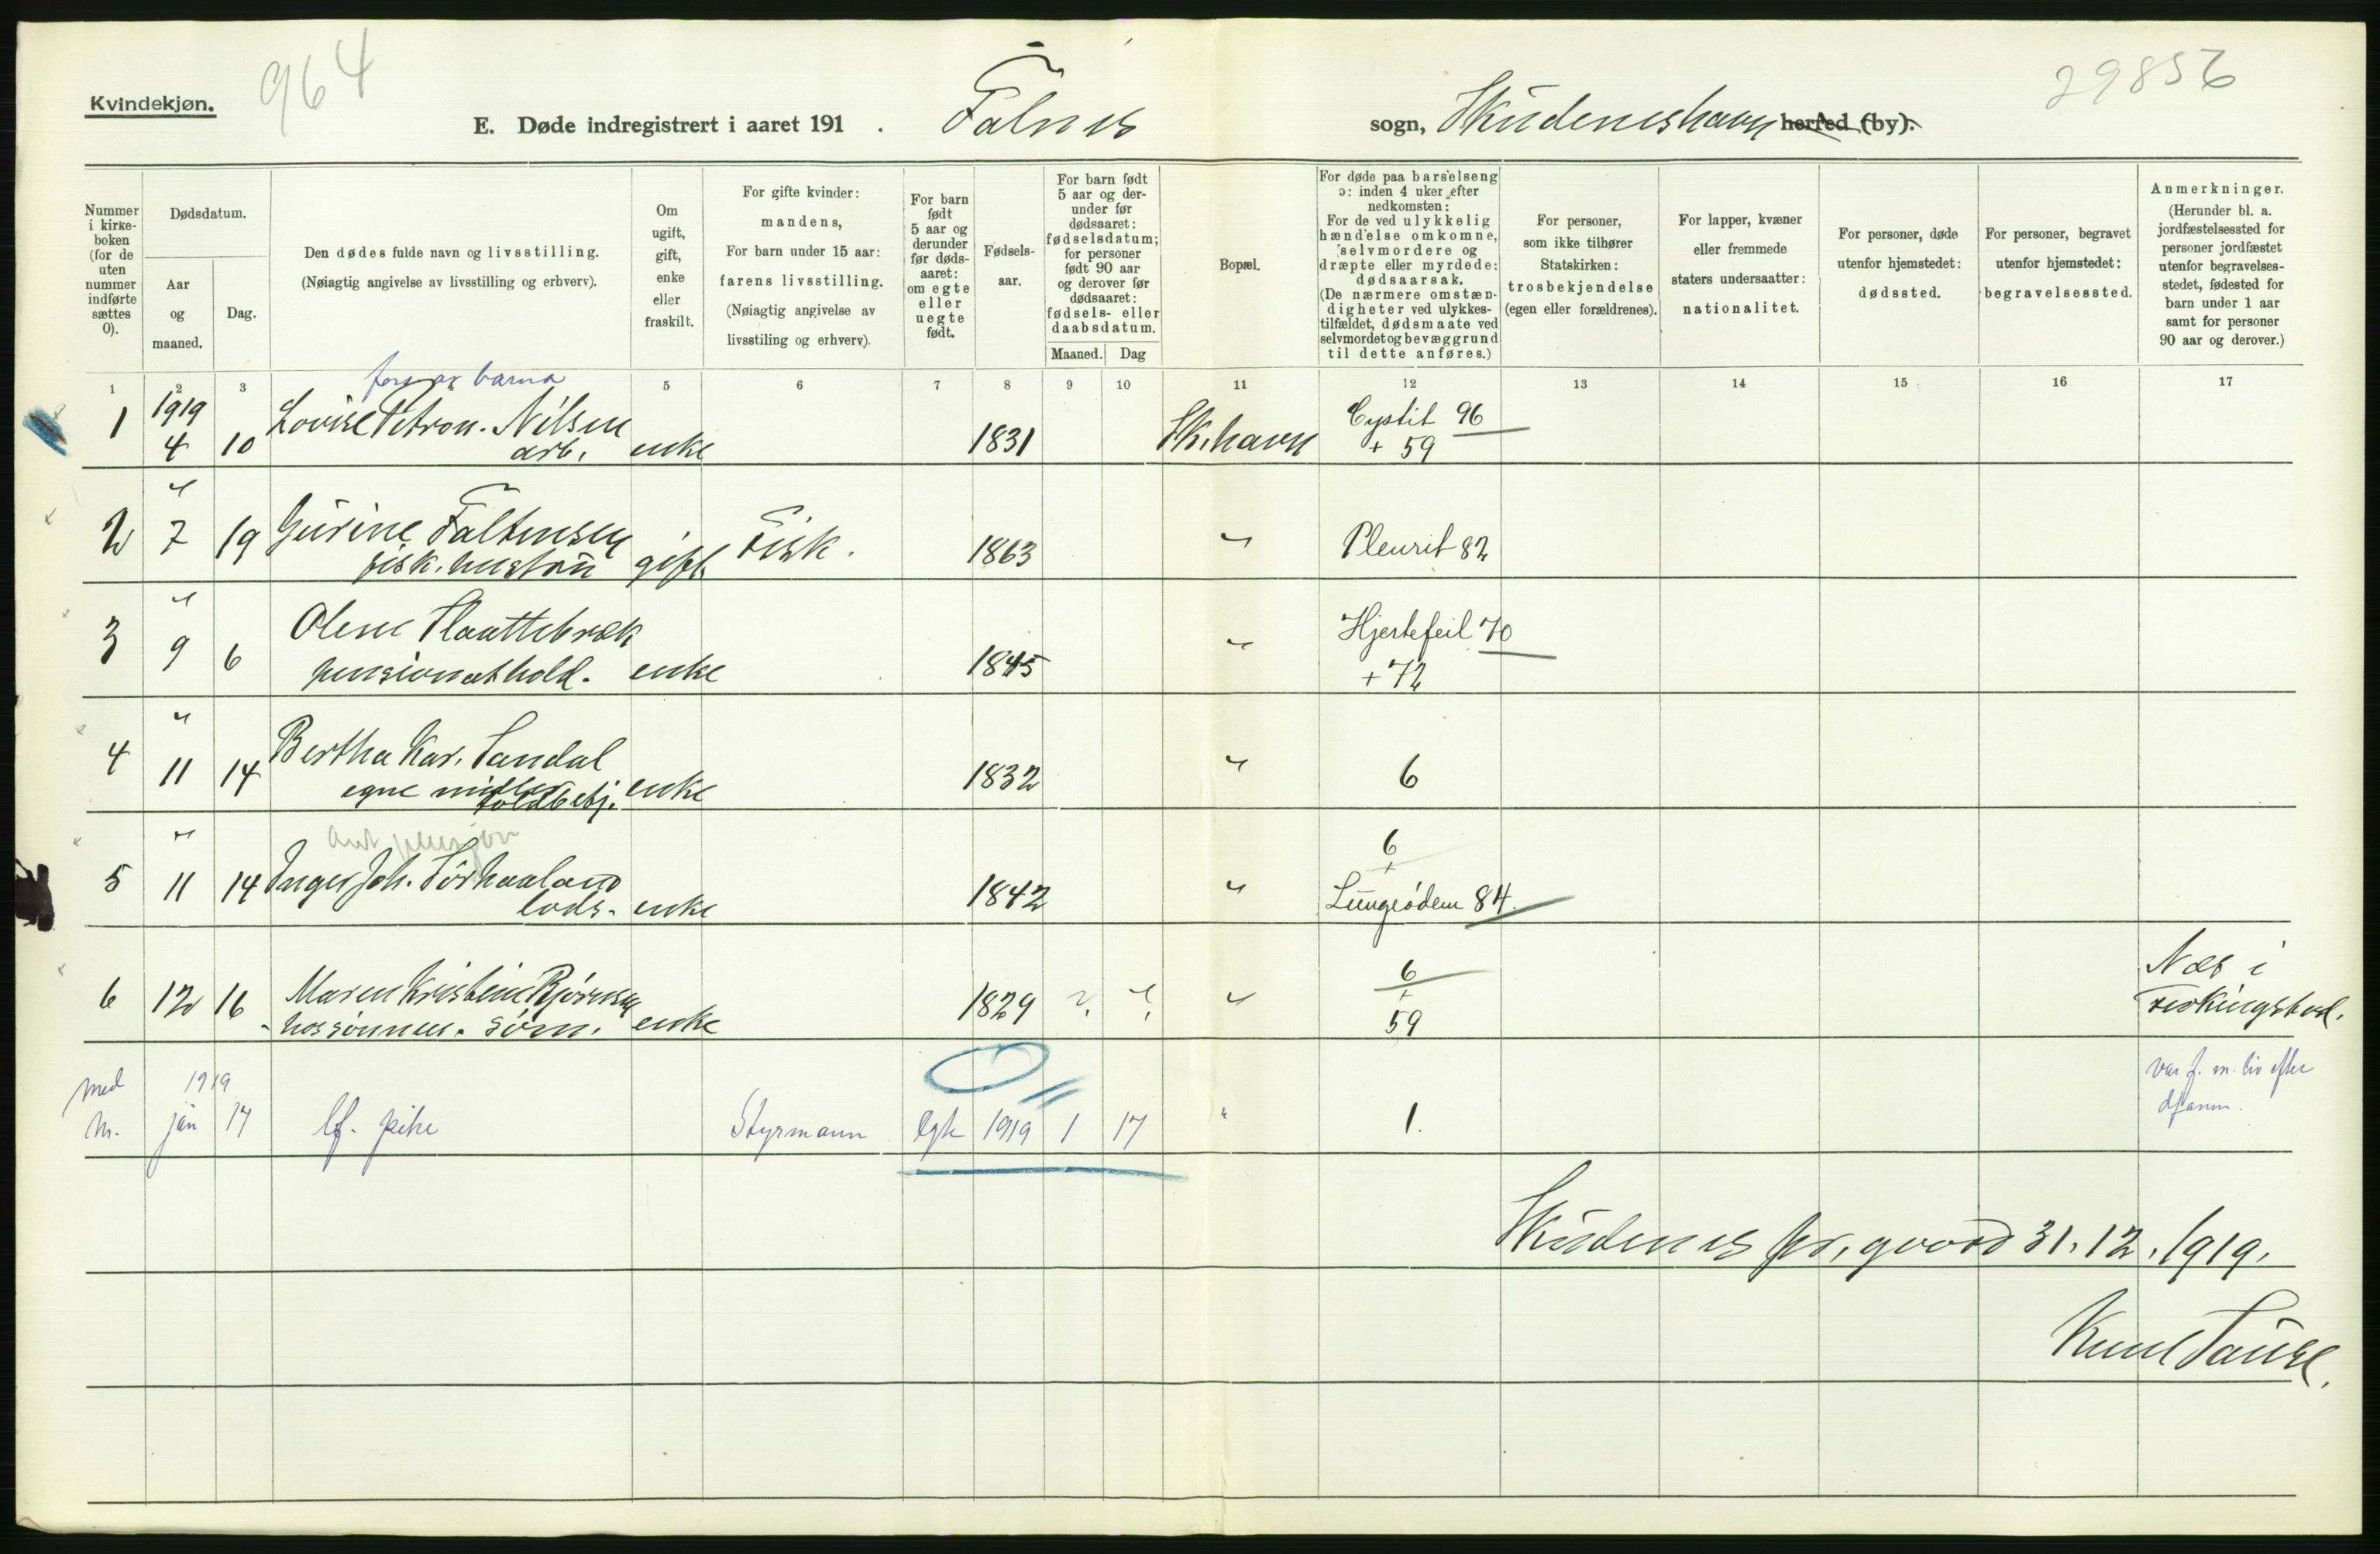 964
29856
Kvindekjøn.
E. Døde indregistrert i aaret 191 . Falnes sogn, Skudeneshavn herred (by).
Nummer i kirke-boken (for de uten nummer indførte sættes 0).
Dødsdatum.
Aar og maaned.
Dag.
Den dødes fulde navn og livsstilling.
(Nøiagtig angivelse av livsstilling og erhverv).
Om ugift, gift, enke eller fraskilt.
For gifte kvinder: mandens,
For barn under 15 aar: farens livsstilling.
(Nøiagtig angivelse av livsstiling og erhverv).
For barn født 5 aar og derunder før døds-aaret: om egte eller uegte født.
Fødsels-aar.
For barn født 5 aar og der-under før dødsaaret: fødselsdatum; for personer født 90 aar og derover før dødsaaret: fødsels- eller daabsdatum.
Maaned. Dag
Bopæl.
For døde paa barselseng ɔ: inden 4 uker efter nedkomsten:
For de ved ulykkelig hændelse omkomne, selvmordere og dræpte eller myrdede: dødsaarsak.
(De nærmere omstæn-digheter ved ulykkes-tilfældet, dødsmaate ved selvmordet og bevæggrund til dette anføres.)
For personer, som ikke tilhører Statskirken: trosbekjendelse (egen eller forældrenes).
For lapper, kvæner eller fremmede staters undersaatter: nationalitet.
For personer, døde utenfor hjemstedet: dødssted.
For personer, begravet utenfor hjemstedet: begravelsessted.
Anmerkninger.
(Herunder bl. a. jordfæstelsessted for personer jordfæstet utenfor begravelses-stedet, fødested for barn under 1 aar samt for personer 90 aar og derover.)
1 2 3 5 6 7 8 9 10 11 12 13 14 15 16 17
fors. av barna
1 1919 4 10 Lovise Petron. Nilsen arb. enke 1831 Sk.havn Cystit 96
+ 59
2 " 7 19 Gurine Faltensen fisk. hustru gift Fisk. 1863 " Pleurit 82
3 " 9 6 Olene Flaattebræk pensionathold. enke 1845 " Hjertefeil 70
+ 72
4 " 11 14 Bertha Kar. Sandal egne midler toldbetj. enke 1832 " 6
5 " 11 14 Inger Joh. Sørhaaland lods. enke 1842 " 6
+
Lungeödem 84
6 12 16 Maren Kristine Bjørnsen hos sønnen. sørn. enke 1829 ? ? " 6
+
59
Næs i
Torkingstad.
med
nr. 1919 jan 17 lf. pike Styrmann Egte 1919 1 17 " 1.
var f. m. liv efter
dfanm.
Skudenes pr.gaard 31.12.1919.